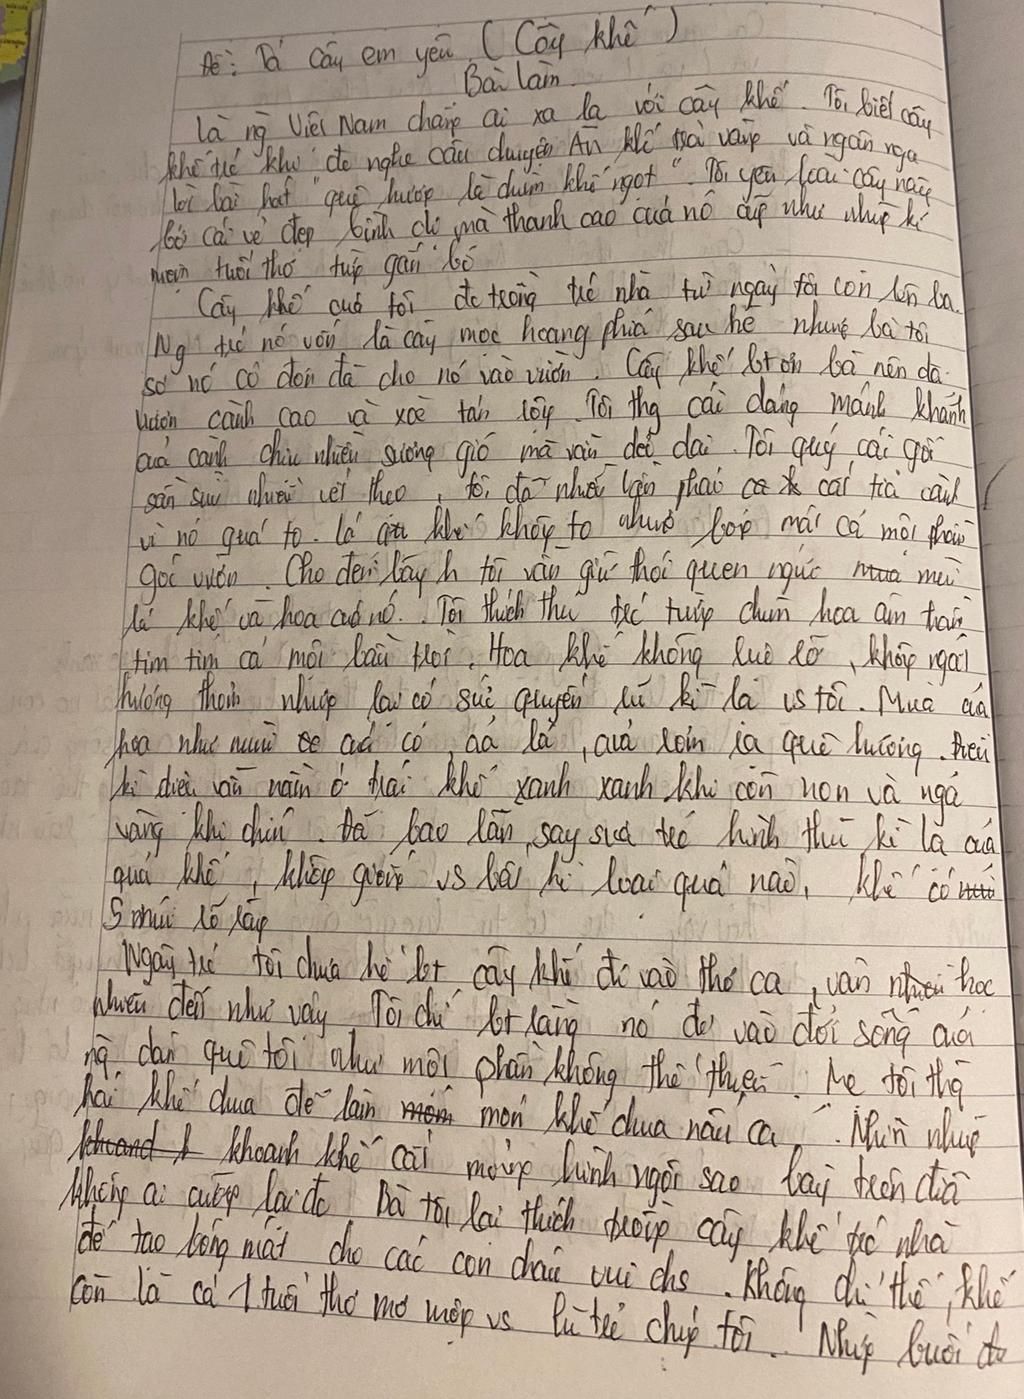 Đề: Tả cây em yêu (Cây khế)
Bài làm
Là ng Việt Nam chẳng ai xa lạ với cây khế. Tôi biết cây
khế từ khi đc nghe câu chuyện Ăn khế trả vàng và ngân nga
lời bài hát "quê hương là chùm khế ngọt". Tôi yêu loài cây này
bởi cái vẻ đẹp bình dị mà thanh cao của nó cũng như những kỉ
niệm tuổi thơ từng gắn bó
Cây khế của tôi đc trồng trc nhà từ ngày tôi còn lên ba.
Ng trc nó vốn là cây mọc hoang phía sau hè nhưng bà tôi
sợ nó cô đơn đã cho nó vào vườn. Cây khế bt ơn bà nên đã
vươn cành cao và xoè tán rộng. Tôi thg cái dáng mảnh khảnh
của cành chịu nhiều sương gió mà vẫn dẻo dai. Tôi quý cái gốc
sần sùi nhiều vết theo, tôi đã nhiều lần phải cắt tỉa cành
vì nó quá to. lá khế không to nhưng bóng mát cả một khoảng
góc vườn. Cho đến bây h tôi vẫn giữ thói quen ngửi mùi
lá khế và hoa của nó. Tôi thích thú trc từng chùm hoa
tim tím cả một bầu trời. Hoa khế không rực rỡ, không ngát
hương thơm nhưng lại có sức quyến rũ kì lạ vs tôi. Mùi của
hoa như mùi của cỏ, của lá, của rơm rạ quê hương. Điều
kì diệu vẫn nằm ở trái khế xanh xanh khi còn non và ngả
vàng khi chín. Đã bao lần, say sưa trc hình thù kì lạ của
quả khế, không giống vs bất kì loại quả nào, khế có
5 múi lồ lộ
Ngày trc tôi chưa hề bt cây khế đi vào thơ ca, văn học
nhiều đến như vậy. Tôi chỉ bt rằng nó đi vào đời sống của
ng dân quê tôi như một phần không thể thiếu. Mẹ tôi thg
hái khế chua để làm món khế chua nấu cá. Nhìn những
khoanh khế cắt mỏng hình ngôi sao bày trên đĩa
không ai cưỡng lại đc. Bà tôi lại thích trồng cây khế trc nhà
để tạo bóng mát cho các con cháu vui chs. Không chỉ thế, khế
còn là cả 1 tuổi thơ mơ mộng vs lũ trẻ chúng tôi. Những buổi